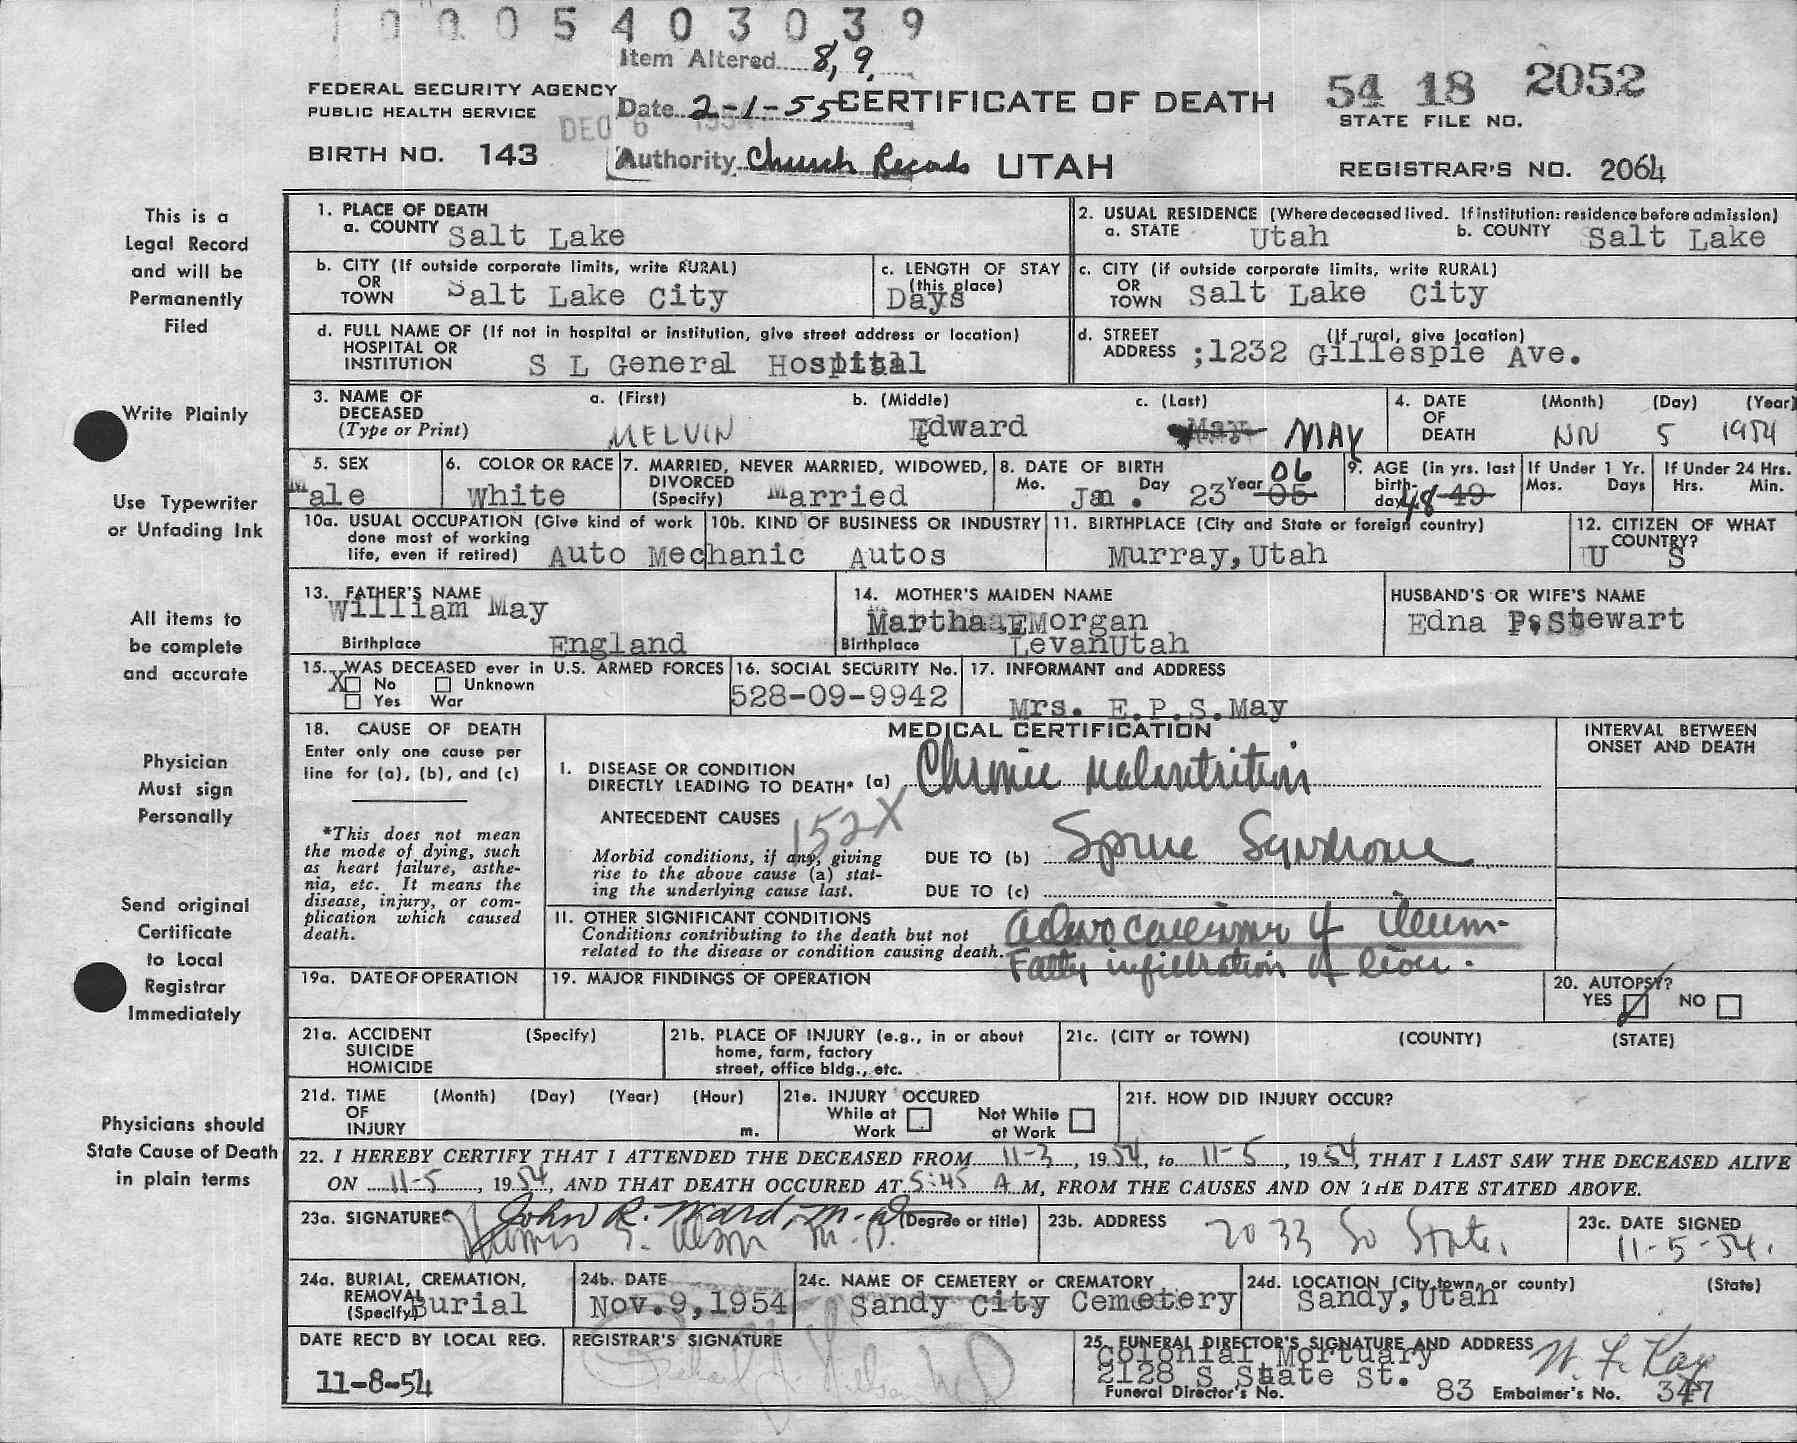 1 0 0 0 5 4 0 3 0 3 9
Item Altered 8, 9,
FEDERAL SECURITY AGENCY
PUBLIC HEALTH SERVICE
Date 2-1-55
CERTIFICATE OF DEATH
54 18 2052
STATE FILE NO.
DEC 6 1954
BIRTH NO. 143
Authority Church Records
UTAH
REGISTRAR'S NO. 2064
This is a
Legal Record
and will be
Permanently
Filed
Write Plainly
Use Typewriter
or Unfading Ink
All items to
be complete
and accurate
Physician
Must sign
Personally
Send original
Certificate
to Local
Registrar
Immediately
Physicians should
State Cause of Death
in plain terms
1. PLACE OF DEATH
a. COUNTY Salt Lake
2. USUAL RESIDENCE (Where deceased lived. If institution: residence before admission)
a. STATE Utah b. COUNTY Salt Lake
b. CITY (If outside corporate limits, write RURAL)
OR
TOWN Salt Lake City
c. LENGTH OF STAY
(this place)
Days
c. CITY (if outside corporate limits, write RURAL)
OR
TOWN Salt Lake City
d. FULL NAME OF (If not in hospital or institution, give street address or location)
HOSPITAL OR
INSTITUTION S L General Hospital
d. STREET (If rural, give location)
ADDRESS ;1232 Gillespie Ave.
3. NAME OF a. (First) b. (Middle) c. (Last)
DECEASED
(Type or Print) MELVIN Edward May MAY
4. DATE (Month) (Day) (Year)
OF
DEATH NOV 5 1954
5. SEX
Male
6. COLOR OR RACE
White
7. MARRIED, NEVER MARRIED, WIDOWED,
DIVORCED
(Specify) Married
8. DATE OF BIRTH
Mo. Day Year
Jan. 23 05 06
9. AGE (in yrs. last
birth-
day) 48 49
If Under 1 Yr.
Mos. Days
If Under 24 Hrs.
Hrs. Min.
10a. USUAL OCCUPATION (Give kind of work
done most of working
life, even if retired) Auto Mechanic
10b. KIND OF BUSINESS OR INDUSTRY
Autos
11. BIRTHPLACE (City and State or foreign country)
Murray, Utah
12. CITIZEN OF WHAT
COUNTRY?
U S
13. FATHER'S NAME
William May
Birthplace England
14. MOTHER'S MAIDEN NAME
Martha E Morgan
Birthplace Levan Utah
HUSBAND'S OR WIFE'S NAME
Edna P. Stewart
15. WAS DECEASED ever in U.S. ARMED FORCES
X No Unknown
Yes War
16. SOCIAL SECURITY No.
528-09-9942
17. INFORMANT and ADDRESS
Mrs. E.P.S.May
18. CAUSE OF DEATH
Enter only one cause per
line for (a), (b), and (c)
*This does not mean
the mode of dying, such
as heart failure, asthe-
nia, etc. It means the
disease, injury, or com-
plication which caused
death.
MEDICAL CERTIFICATION
INTERVAL BETWEEN
ONSET AND DEATH
I. DISEASE OR CONDITION
DIRECTLY LEADING TO DEATH* (a) Chronic Malnutrition
ANTECEDENT CAUSES
152X
Morbid conditions, if any, giving
rise to the above cause (a) stat-
ing the underlying cause last.
DUE TO (b) Sprue Syndrome
DUE TO (c)
II. OTHER SIGNIFICANT CONDITIONS
Conditions contributing to the death but not
related to the disease or condition causing death.
Adenocarcinoma of ileum-
Fatty infiltration of liver.
19a. DATE OF OPERATION
19. MAJOR FINDINGS OF OPERATION
20. AUTOPSY?
YES NO
21a. ACCIDENT (Specify)
SUICIDE
HOMICIDE
21b. PLACE OF INJURY (e.g., in or about
home, farm, factory
street, office bldg., etc.
21c. (CITY or TOWN) (COUNTY) (STATE)
21d. TIME (Month) (Day) (Year) (Hour)
OF
INJURY m.
21e. INJURY OCCURED
While at Not While
Work at Work
21f. HOW DID INJURY OCCUR?
22. I HEREBY CERTIFY THAT I ATTENDED THE DECEASED FROM 11-3, 1954, to 11-5, 1954, THAT I LAST SAW THE DECEASED ALIVE
ON 11-5, 1954, AND THAT DEATH OCCURED AT 5:45 A M, FROM THE CAUSES AND ON THE DATE STATED ABOVE.
23a. SIGNATURE John R. Ward, M.D. (Degree or title)
M.D.
23b. ADDRESS
2033 So State.
23c. DATE SIGNED
11-5-54.
24a. BURIAL, CREMATION,
REMOVAL
(Specify) Burial
24b. DATE
Nov.9,1954
24c. NAME OF CEMETERY or CREMATORY
Sandy City Cemetery
24d. LOCATION (City, town, or county) (State)
Sandy, Utah
DATE REC'D BY LOCAL REG.
11-8-54
REGISTRAR'S SIGNATURE
25. FUNERAL DIRECTOR'S SIGNATURE AND ADDRESS
Colonial Mortuary
2128 S State St.
W. F. Kay
Funeral Director's No. 83 Embalmer's No. 347